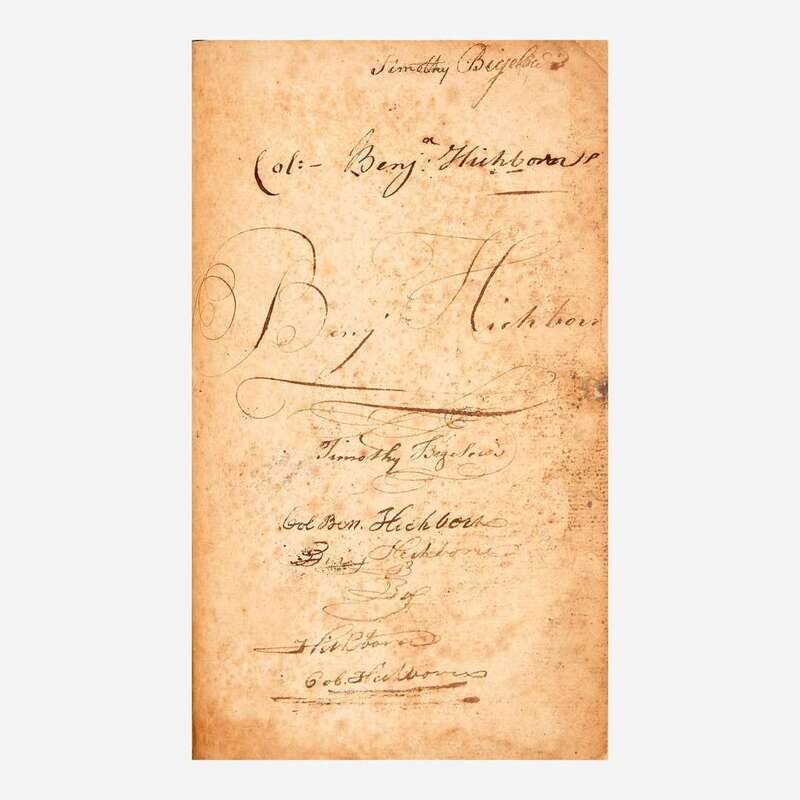 Timothy Bigelow's
Col:- Benjᵃ. Hichborn
Benj Hichborn
Timothy Bigelow's
Col Ben. Hichborn
Benj Hichborn
B
By
Hichborn
Col. Hichborn